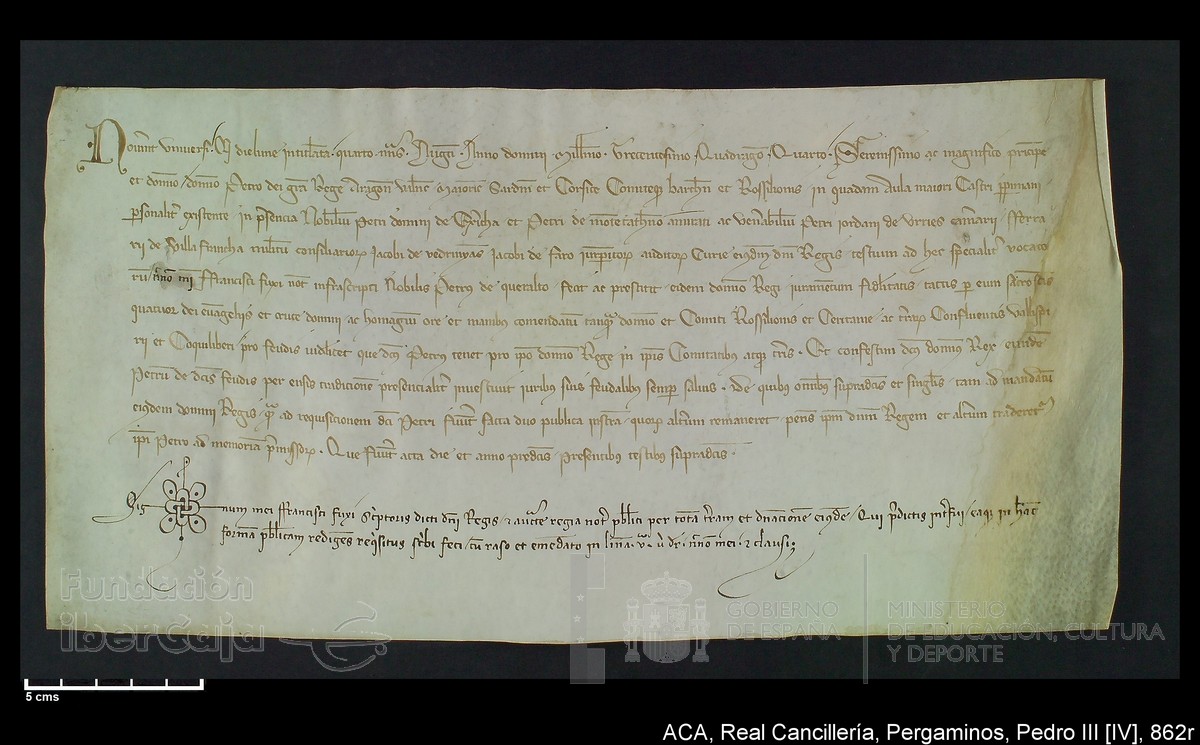 Noverint universi. Qd die lune intitulata quarto mens August. Anno domini Millimo Trecentesimo Quadrages Quarto. Serenissimo ac magnifico principe
et domino domino Petro dei gra Rege Aragon Valenc Maioric Sardin et Corsice Comiteq barchn et Rossilionis in quadam Aula maiori Castri perpiniani
personalit existente in presencia Nobiliu Petri domini de Exericha et Petri de montecatheno amirati ac venerabiliu Petri iordani de Urries camerarii fferra
rii de Villa francha militum consiliarior Jacobi de Jacobi de faro iurisperitor auditor Curie eiusdm dni Regis testium ad hec specialit vocato
ru nomo mei ffrancisci fuxi not infrascripti Nobilis Petrus de queralto fecit ac prestitit eidem domino Regi iuramentum fidelitatis tactis per eum sacros
quatuor dei evangeliis et cruce domini ac homagium ore et manibus comendatu tanq domino et Comiti Rossilionis et Ceritanie ac terrar Confluentis vallispi
rii et Coquiliberi pro feudis videlicet que dcus Petrus tenet pro ipo domino Rege in ipsis Comitatibus atq terris. Et confestim dcus dominus Rex eundem
Petrum de dcis feudis per ensis tradicionem presencialit investivit iuribus suis feudalibus semper salvis. De quibus omibus supradcis et singlis tam ad mandatu
eiusdem domini Regis q ad requisicionem dci Petri fuerut facta duo publica instra quor alterum remaneret penes ipm dnm Regem et alterum traderetur
ipi Petro ad memoria premissor. Que fuert acta die et anno predcis presentibus testibus supradcis.
Sig num mei ffrancisci fuxi Scriptoris dicti dni Regis et aucte regia not publici per tota terram et dnacionem eiusde Qui predictis interfui eaq in hac
forma publicam rediges requisitus scribi feci cu raso et emedato in linea v u dr nomo mei et clausi
Fundación
iberCaja
GOBIERNO
DE ESPAÑA
MINISTERIO
DE EDUCACIÓN, CULTURA
Y DEPORTE
5 cms
ACA, Real Cancillería, Pergaminos, Pedro III [IV], 862r